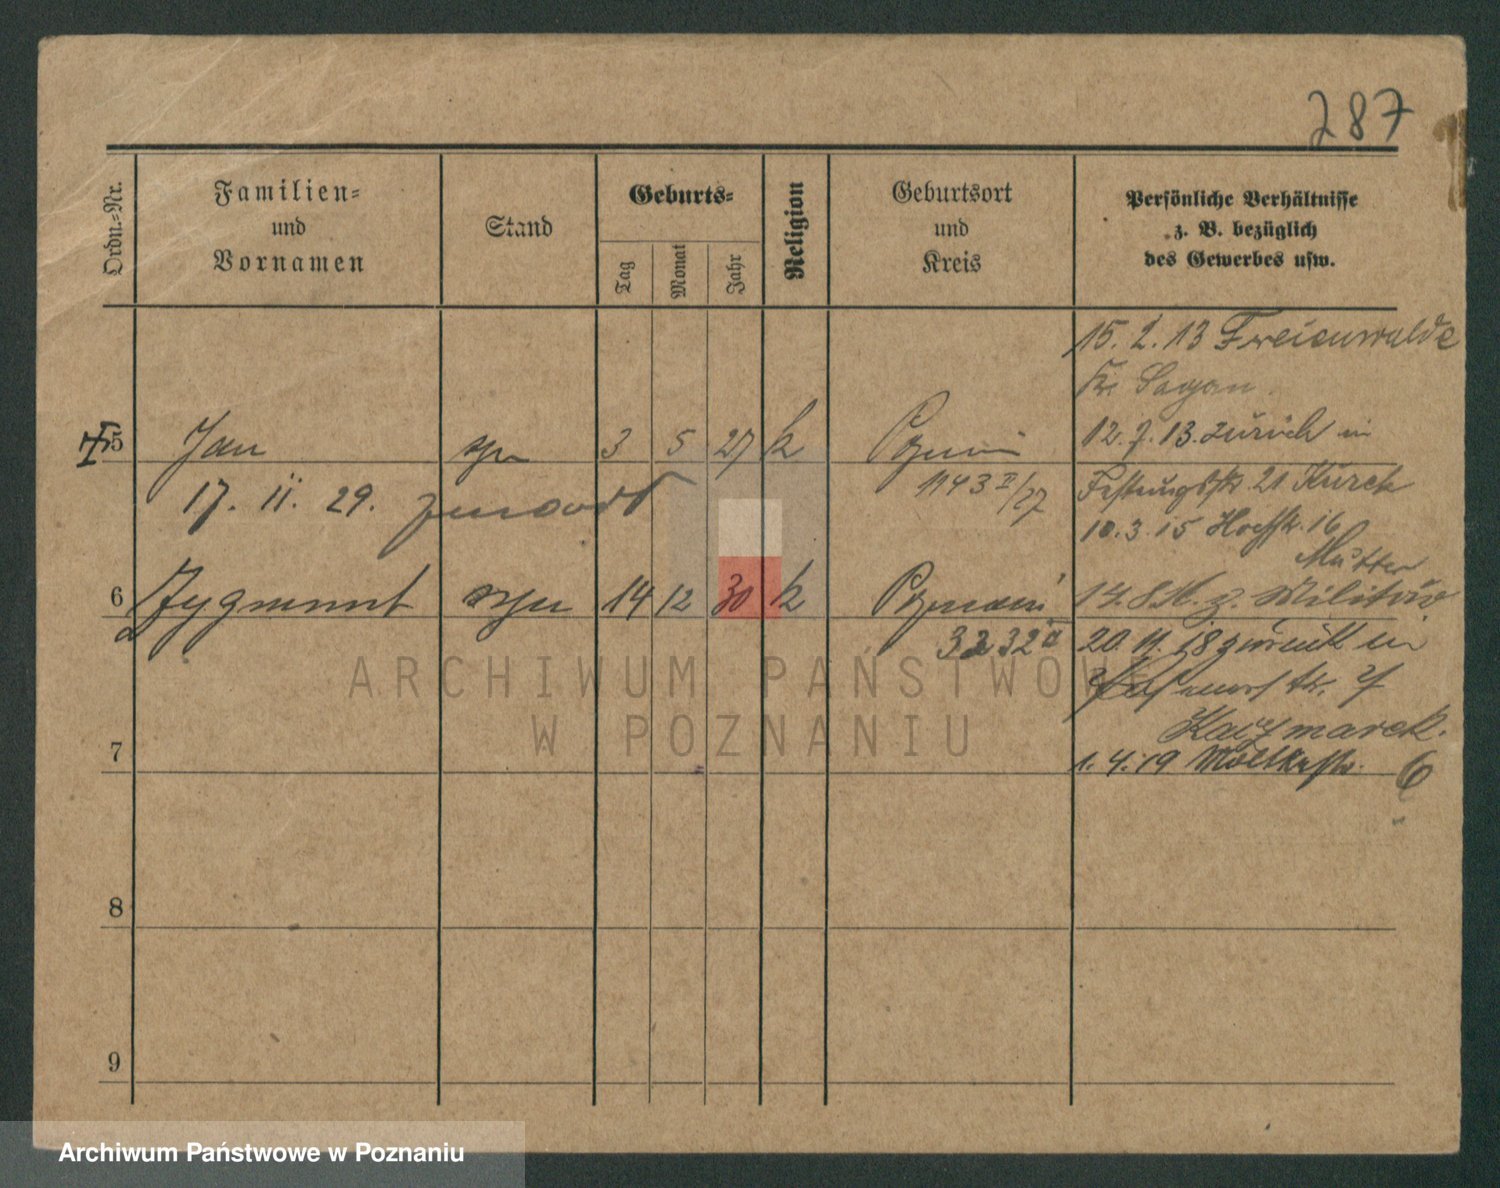 287
Ordn.-Nr.
Familien-
und
Vornamen
Stand
Geburts-
Tag
Monat
Jahr
Religion
Geburtsort
und
Kreis
Persönliche Verhältnisse
z. B. bezüglich
des Gewerbes usw.
15. 2. 13 Freienwalde
Kr. Sagan
5 Jan syn 3 5 27 k Poznań
12. 7. 13. zurück in
17. 11. 29. zmarł
1143 II/27
Festungsstr. 21
10. 3. 15 16
Mutter
6 Zygmunt syn 14 12 30 k Poznań
z. Militär
3232 II
20. 11. 18 zurück in
7
Kaczmarek.
7
1. 4. 19 Moltkestr. 6
8
9
ARCHIWUM PAŃSTWOWE
W POZNANIU
Archiwum Państwowe w Poznaniu